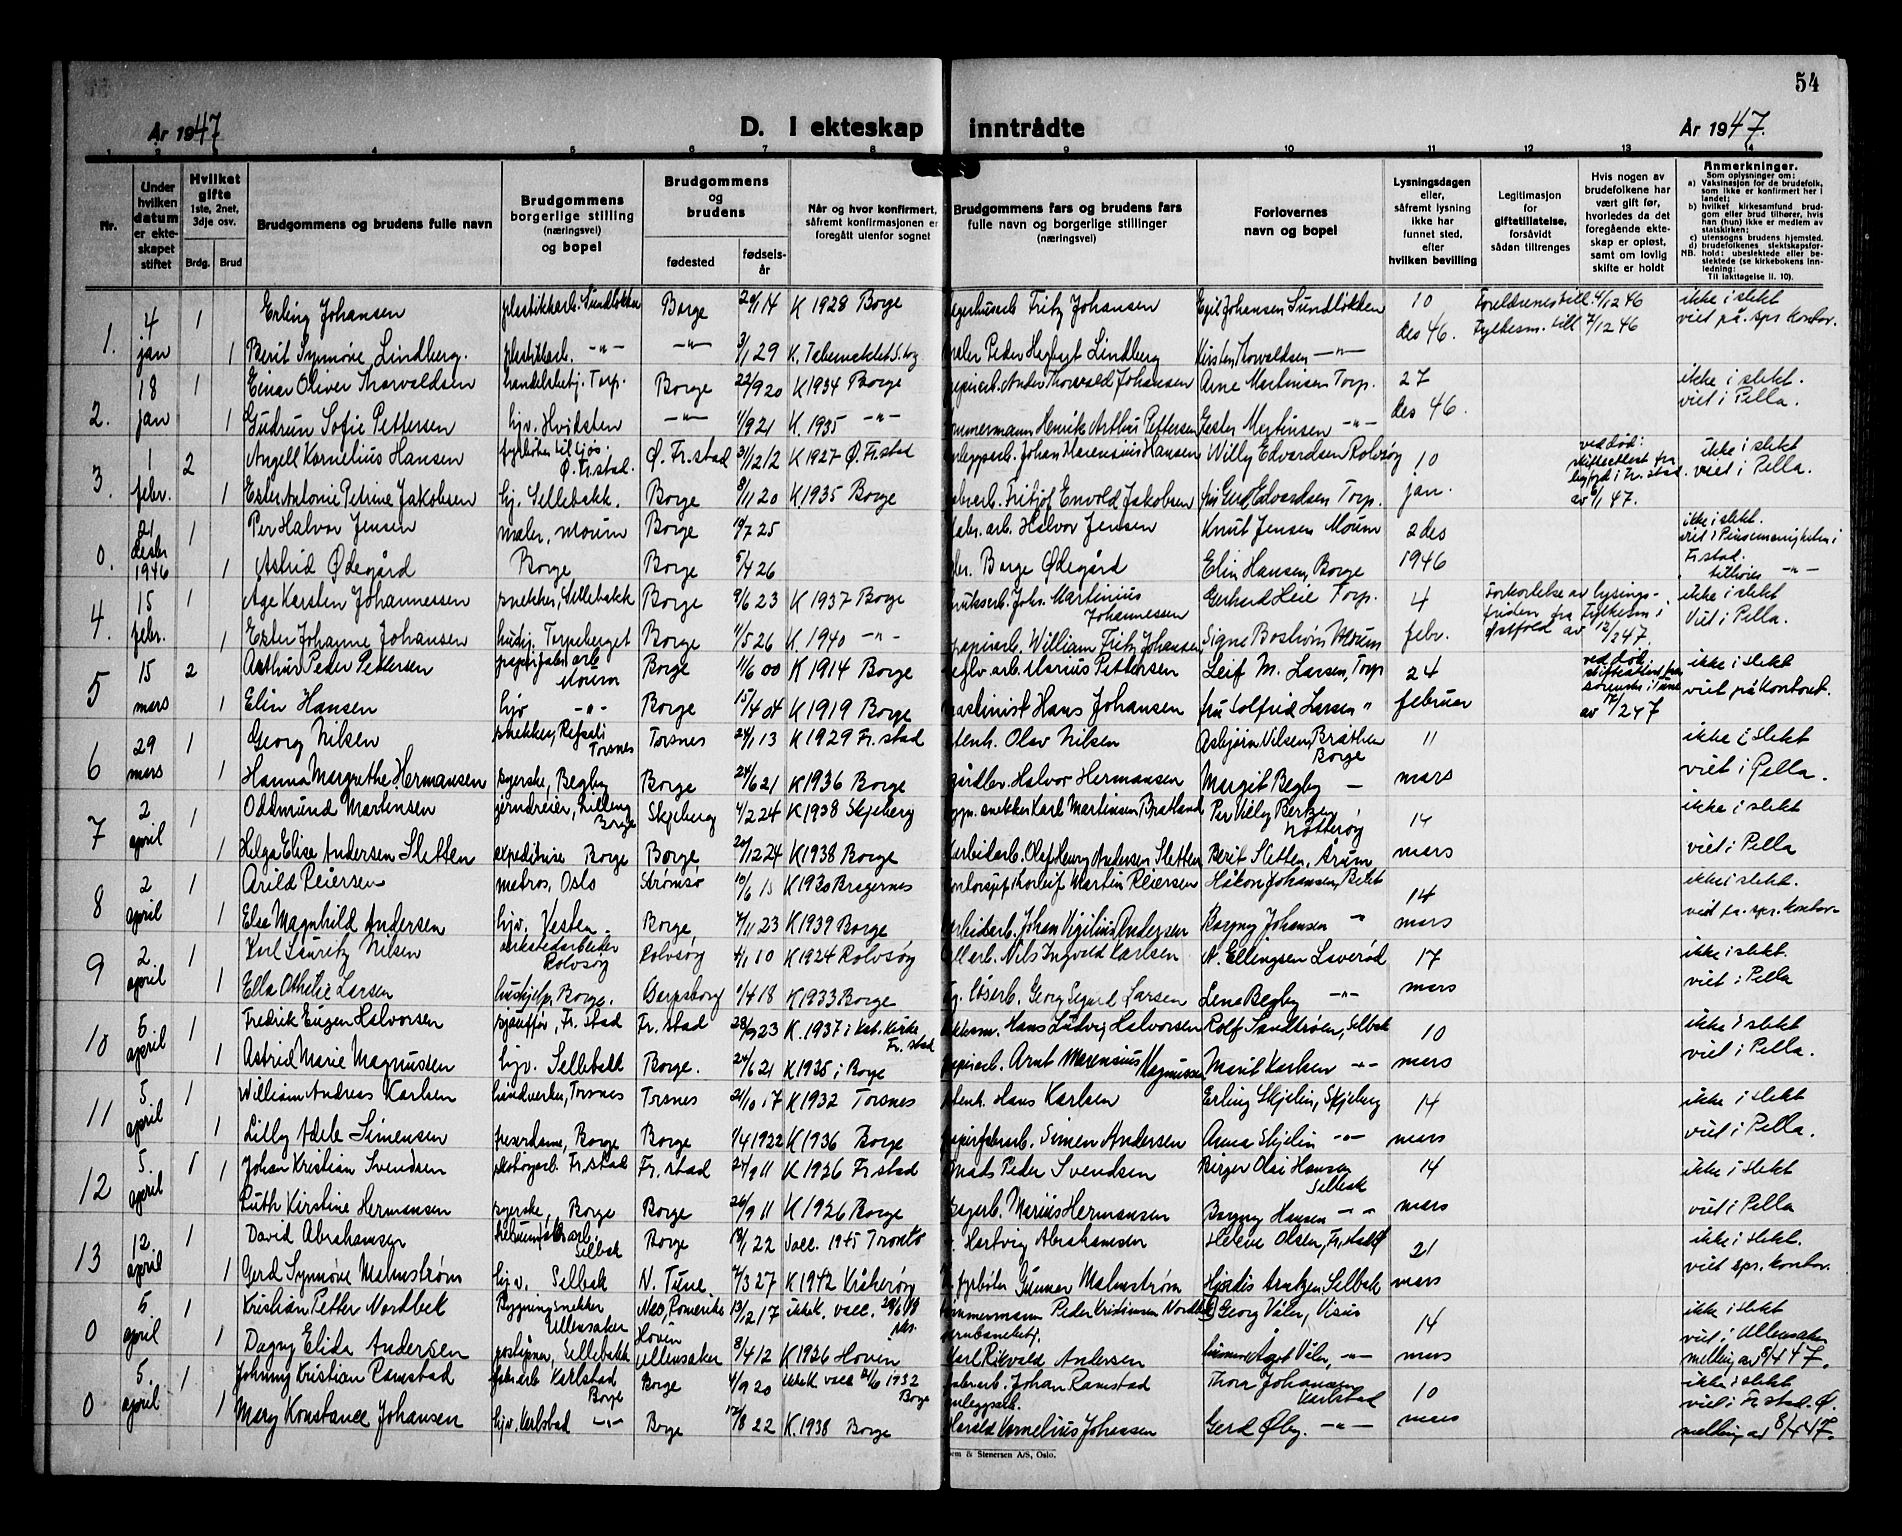 54
År 1947
D. I ekteskap inntrådte
År 1947.
1 2 3 4 5 6 7 8 9 10 11 12 13 14
Nr.
Under hvilken datum er ekteskapet stiftet
Hvilket gifte 1ste, 2net, 3dje osv.
Brdg. Brud
Brudgommens og brudens fulle navn
Brudgommens borgerlige stilling (næringsvei) og bopel
Brudgommens og brudens
fødested
fødselsår
Når og hvor konfirmert, såfremt konfirmasjonen er foregått utenfor sognet
Brudgommens fars og brudens fars fulle navn og borgerlige stillinger (næringsvei)
Forlovernes navn og bopel
Lysningsdagen eller, såfremt lysning ikke har funnet sted, efter hvilken bevilling
Legitimasjon for giftetillatelse, forsåvidt sådan tiltrenges
Hvis nogen av brudefolkene har vært gift før, hvorledes da det foregående ekteskap er opløst, samt om lovlig skifte er holdt
Anmerkninger.
Som oplysninger om:
a) Vaksinasjon for de brudefolk, som ikke er konfirmert her i landet;
b) hvilket kirkesamfund brudgom eller brud tilhører, hvis han (hun) ikke er medlem av statskirken;
c) utensogns brudens hjemsted.
d) brudefolkenes slektskapsforhold: ubeslektede eller beslektede (se kirkebokens innledning:
NB. Til iakttagelse II. 10).
1. 4 jan 1 Erling Johansen plastikkarb. Sundløkka Borge 20/1 14 K 1928 Borge Fritz Johansen Egil Johansen Sundløkken 10 des 46. Foreldrenes till. 4/12 46 ikke i slekt
1 Berit Synnøve Lindberg. plastikkarb. -"- -"- 3/1 29 K. Tabernaklet S.borg Peder Lindberg Kirsten Thorvaldsen -"- Fylkesm. till 7/12 46 viet på spr. kontor.
2. 18 jan 1 Einar Oliver Thorvaldsen handelsbetj. Torp. Borge 22/9 20 K 1934 Borge Thorvald Johansen Arne Martinsen Torp. 27 des 46. ikke i slekt.
1 Gudrun Sofie Pettersen hjv. Hvidsten -"- 1/9 21 K. 1935 -"- Henrik Arthur Pettersen Martinsen -"- viet i Pella.
3. 1 febr. 2 Angell Kornelius Hansen Ø. Fr.stad. Ø. Fr.stad 31/12 12 K 1927 Ø. Fr.stad Johan Marensius Hansen Willy Edvardsen Rolvsøy 10 jan. ved død: skifteattest fra i Fr. stad av 8/1 47. ikke i slekt
1 Ester Antonie Petrine Jakobsen hj. Sellebakk. Borge 8/11 20 K. 1935 Borge Fritjof Envold Jakobsen fru Gerd Edvardsen Torp. viet i Pella.
0. 21 desbr 1946 1 Per Halvor Jensen maler, Moum Borge 19/7 25 Halvor Jensen Knut Jensen Moum 2 des 1946 ikke i slekt.
1 Astrid Ødegård Borge Borge 5/4 26 Børge Ødegård Elin Hansen, Borge viet i Pinsemenigheten i Fr.stad. tilhører -"-
4. 15 febr. 1 Åge Karsten Johannessen snekker, Sellebakk Borge 9/6 23 K 1937 Borge Joh. Martinius Johannessen Gerhard Heie Torp. 4 febr. Forkortelse av lysningsfristen fra Fylkesm i Østfold av 12/2 47. ikke i slekt
1 Ester Johanne Johansen hushj. Torpeberget Borge 11/5 26 K. 1940 -"- papirarb. William Fritz Johansen Signe Boström Moum Viet i Pella.
5 15 mars 2 Arthur Peder Pettersen papirfabr. arb Moum Borge 11/6 00 K 1914 Borge Marius Pettersen Leif M. Larsen, Torp 24 februar ved død skifteattest fra sorenskr. i Tune av 17/2 47 ikke i slekt
1 Elin Hansen hjv -"- Borge 15/4 04 K 1919 Borge Hans Johansen fru Solfrid Larsen " viet på kontoret.
6 29 mars 1 Georg Nilsen snekker, Torsnes Torsnes 24/1 13 K 1929 Fr. stad Olav Nilsen Asbjørn Nilsen, Bråthen Borge 11 mars ikke i slekt
1 Hanna Margrethe Hermansen syerske, Begby Borge 24/6 21 K 1936 Borge gårdbr. Halvor Hermansen Margit Begby - viet i Pella.
7 2 april 1 Oddmund Martensen jerndreier, Borge Skjeberg 4/2 24 K 1938 Skjeberg snekker Karl Martinsen Bratland Per Villy Nøtterøy 14 mars ikke i slekt
1 Helga Elise Andersen Sletten expeditrise Borge Borge 20/12 24 K 1938 Borge Olaf Henry Andersen Sletten Berit Sletten, Årum viet i Pella
8 2 april 1 Arild Reiersen matros, Oslo Strømsø 10/6 15 K 1930 Bragernes Thorleif Martin Reiersen Håkon Johansen, 14 mars ikke i slekt.
1 Else Magnhild Andersen hjv. Vesten Borge 7/11 23 K 1939 Borge Johan Vigilius Andersen Johansen " viet på spr. kontor
9 2 april 1 Karl Lauritz Nilsen verkstedarbeider Rolvsøy Rolvsøy 4/1 10 K 1924 Rolvsøy Nils Ingvald Karlsen N. Ellingsen 17 mars ikke i slekt.
1 Ella Othelie Larsen hushjelp, Borge. Sarpsborg 1/4 18 K 1933 Borge Georg Sigurd Larsen Lena Begby -"- viet i Pella
10 5 april 1 Fredrik Eugen Halvorsen sjauffør, Fr. stad Fr. stad 28/9 23 K. 1937 i Kat. Kirke, Fr. stad Hans Ludvig Halvorsen Rolf Sandtrøen, Selbak 10 mars ikke i slekt
1 Astrid Marie Magnussen hjv. Sellebakk Borge. 24/6 21 K 1935 i Borge papirarb. Arnt Marensius Magnussen Marit Karlsen -"- viet i Pella.
11 5. april 1 William Andreas Karlsen Torsnes Torsnes 21/10 17 K 1932 Torsnes Hans Karlsen Erling Skjelin, Skjeberg 14 mars ikke i slekt
1 Lilly Adele Simensen friserdame, Borge Borge 1/4 1922 K 1936 Borge papirfabrarb. Simen Andersen Anna Skjelin -"- viet i Pella.
12 5. april 1 1 Johan Kristian Svendsen skotøyarb. Fr. stad Fr. stad 24/9 11 K 1926 Fr. stad Mads Peder Svendsen Birger Olai Hansen Selbak 14 mars ikke i slekt
Ruth Kirstine Hermansen syerske, Borge Borge 26/9 11 K 1926 Borge Marius Hermansen Hansen -"- viet i Pella
13 12. april 1 David Abrahamsen Selbak Borge 22 Vacc. 1945 Toronto Hartvig Abrahamsen Helene Olsen, Fr. stad 21 mars ikke i slekt.
1 Gerd Synnøve Malmstrøm hjv. Selbak N. Tune 7/3 27 K 1942 Kråkerøy fyrbøter Gunnar Malmstrøm Hjørdis Arntzen Selbak viet spr. kontor.
0 5 april 1 Kristian Petter Nordbek Bygningssnekker Ullensaker Nes, Romerike 13/12 17 ikke K. vacc. 29/6 19 Peder Kristiansen Georg Våler, 14 mars ikke i slekt
1 Dagny Elida Andersen Sellebakk Hovin Ullensaker 8/4 12 K 1926 Hovin Karl Rikvald Andersen Aagot Våler, -"- viet i Ullensaker melding av 8/4 47.
0 5. april 1 Johnny Kristian Ramstad fabr. arb Karlstad Borge Borge 4/9 20 vacc 1932 Borge Johan Ramstad Thor Johansen Karlstad 10 mars ikke i slekt
1 Mary Konstance Johansen hjv. Karlstad -"- Borge 12/8 22 K. 1938 Borge Harald Kornelius Johansen Gerd Øby. -"- viet i Fr. stad. Ø. melding av 8/4 47.
& Stenersen A/S, Oslo.